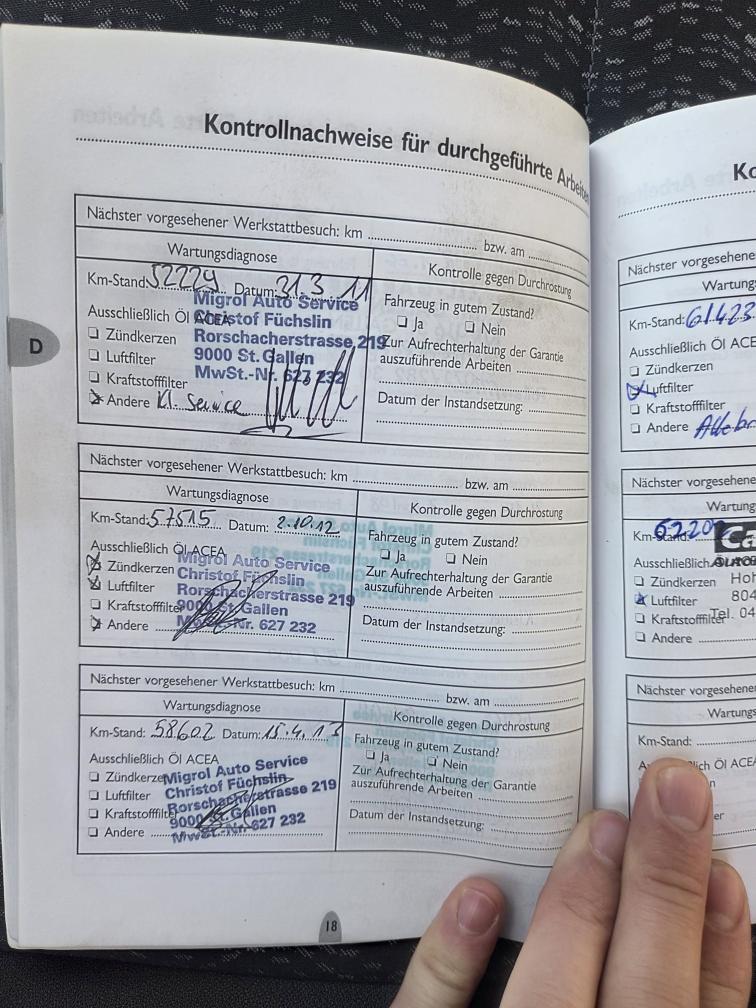 Kontrollnachweise für durchgeführte Arbeiten
D
Nächster vorgesehener Werkstattbesuch: km bzw. am
Wartungsdiagnose
Km-Stand: 52229 Datum: 31.3 11
Ausschließlich Öl ACEA
Zündkerzen
Luftfilter
Kraftstofffilter
Andere Kl. Service
Migrol Auto Service
Christof Füchslin
Rorschacherstrasse 219
9000 St. Gallen
MwSt.-Nr. 627 232
Kontrolle gegen Durchrostung
Fahrzeug in gutem Zustand?
Ja Nein
Zur Aufrechterhaltung der Garantie
auszuführende Arbeiten
Datum der Instandsetzung:
Nächster vorgesehener Werkstattbesuch: km bzw. am
Wartungsdiagnose
Km-Stand: 57515 Datum: 2.10.12
Ausschließlich Öl ACEA
Zündkerzen
Luftfilter
Kraftstofffilter
Andere
Migrol Auto Service
Christof Füchslin
Rorschacherstrasse 219
9000 St. Gallen
MwSt.-Nr. 627 232
Kontrolle gegen Durchrostung
Fahrzeug in gutem Zustand?
Ja Nein
Zur Aufrechterhaltung der Garantie
auszuführende Arbeiten
Datum der Instandsetzung:
Nächster vorgesehener Werkstattbesuch: km bzw. am
Wartungsdiagnose
Km-Stand: 58602 Datum: 15.4.13
Ausschließlich Öl ACEA
Zündkerzen
Luftfilter
Kraftstofffilter
Andere
Migrol Auto Service
Christof Füchslin
Rorschacherstrasse 219
9000 St. Gallen
MwSt.-Nr. 627 232
Kontrolle gegen Durchrostung
Fahrzeug in gutem Zustand?
Ja Nein
Zur Aufrechterhaltung der Garantie
auszuführende Arbeiten
Datum der Instandsetzung:
18
Ko
Nächster vorgesehene
Wartung
Km-Stand: 61423
Ausschließlich Öl ACE
Zündkerzen
Luftfilter
Kraftstofffilter
Andere
Nächster vorgesehene
Wartung
Km-Stand:
Ausschließlich
Zündkerzen Ho
Luftfilter 804
Kraftstofffilter Tel. 04
Andere
Nächster vorgesehene
Wartungs
Km-Stand: